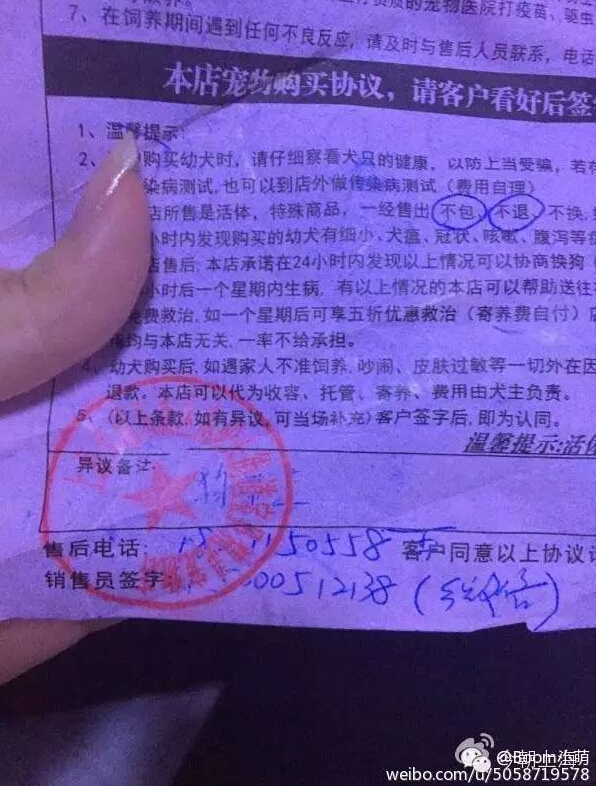 资质的宠物医院打疫苗、驱虫
7、在饲养期间遇到任何不良反应，请及时与售后人员联系，电话
本店宠物购买协议，请客户看好后签
1、温馨提示：
2、 购买幼犬时，请仔细察看犬只的健康，以防上当受骗，若有
染病测试，也可以到店外做传染病测试（费用自理）
店所售是活体，特殊商品，一经售出不包、不退、不换，
小时内发现购买的幼犬有细小、犬瘟、冠状、咳嗽、腹泻等症
店售后，本店承诺在24小时内发现以上情况可以协商换狗（
小时后一个星期内生病，有以上情况的本店可以帮助送往
免费救治，如一个星期后可享五折优惠救治（寄养费自付）店
均与本店无关，一率不给承担。
4、幼犬购买后，如遇家人不准饲养、吵闹、皮肤过敏等一切外在因
退款。本店可以代为收容、托管、寄养、费用由犬主负责。
5、（以上条款，如有异议，可当场补充）客户签字后，即为认同。
温馨提示:活体
异议备注：
售后电话： 1150558 客户同意以上协议
销售员签字： 00512138
weibo.com/u/5058719578